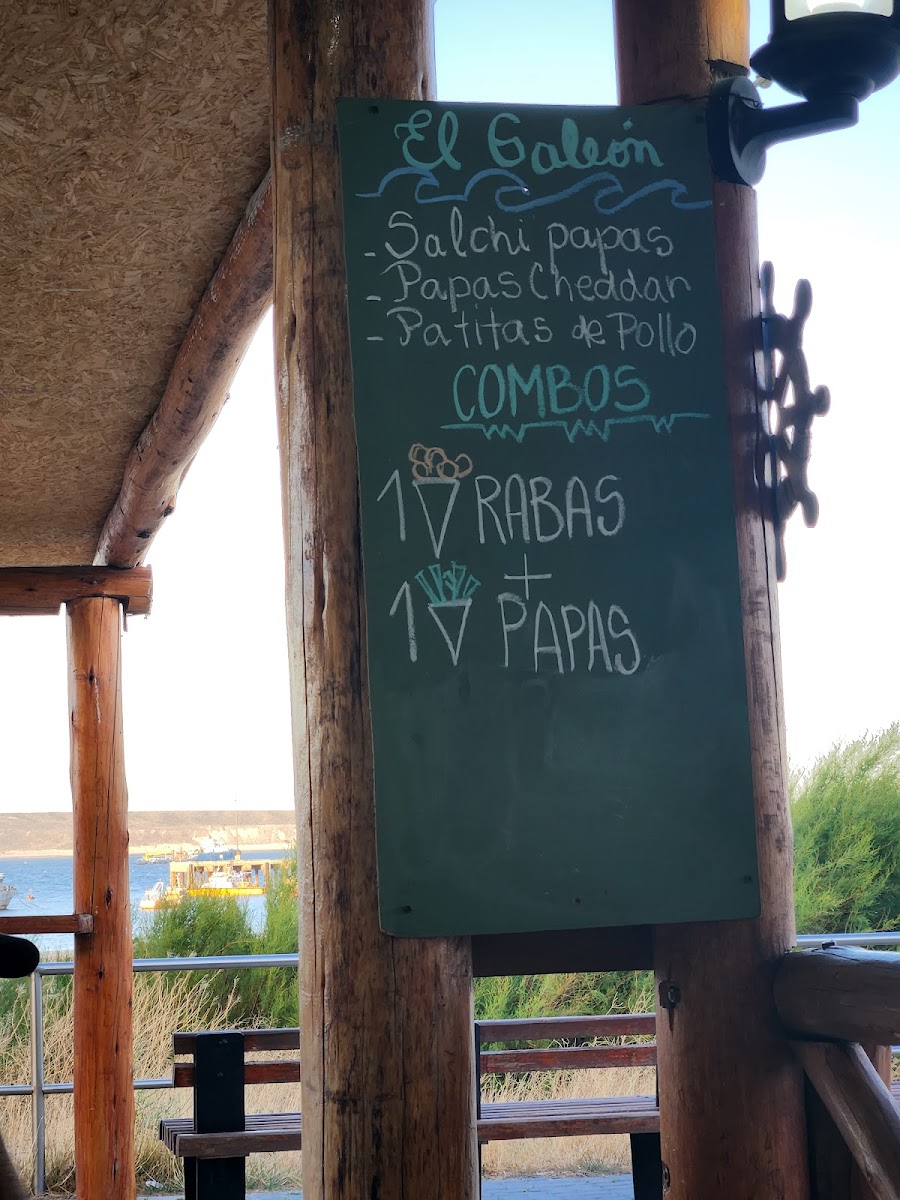 El Galeón
- Salchi papas
- Papas Cheddar
- Patitas de Pollo
COMBOS
1 RABAS
+
1 PAPAS